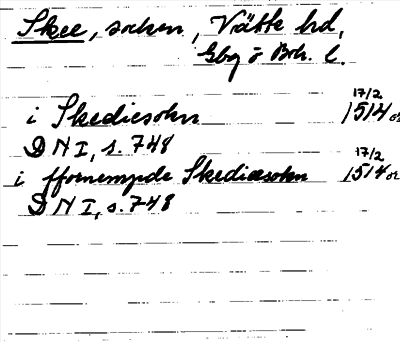 Skee, socken, Vätte hd,
Gbg o Boh. l.
i Skediesokn 17/2 1514 or
D N I, s. 748
i ffornempde Skediæsokn 17/2 1514 or
D N I, s. 748